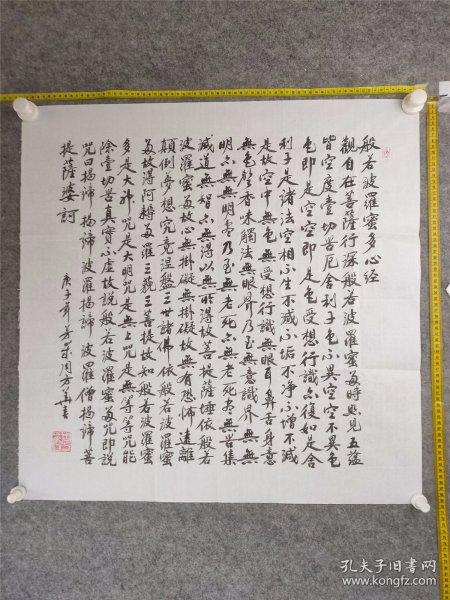 般若波羅蜜多心經
觀自在菩薩行深般若波羅蜜多時照見五蘊
皆空度壹切苦厄舍利子色不異空空不異色
色即是空空即是色受想行識亦復如是舍
利子是諸法空相不生不滅不垢不净不增不減
是故空中無色無受想行識無眼耳鼻舌身意
無色聲香味觸法無眼界乃至無意識界無無
明亦無無明盡乃至無老死亦無老死盡無苦集
滅道無智亦無得以無所得故菩提薩埵依般若
波羅蜜多故心無掛礙無掛礙故無有恐怖遠離
顛倒夢想究竟涅盤三世諸佛依般若波羅蜜
多故得阿耨多羅三藐三菩提故知般若波羅蜜
多是大神咒是大明咒是無上咒是無等等咒能
除壹切苦真實不虛故說般若波羅蜜多咒即說
咒曰揭諦揭諦波羅揭諦波羅僧揭諦菩
提薩婆訶
庚子年
孔夫子旧书网
www.kongfz.com